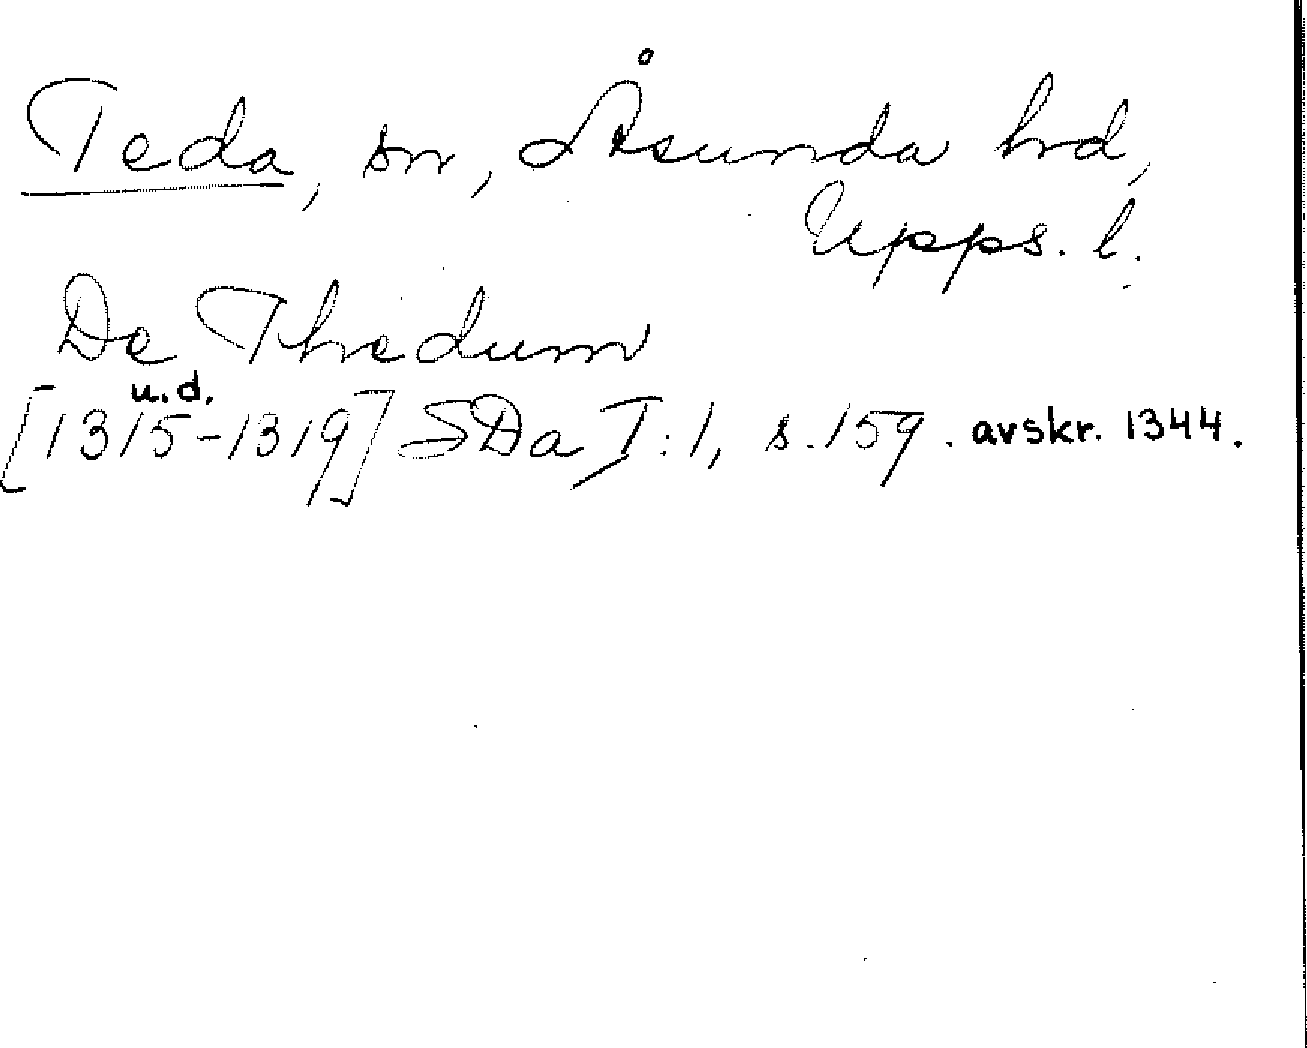 Teda, sn, Åsunda hrd,
Upps. l.
De Thedum
u.d.
[1315-1319] SDa I:1, s. 159. avskr. 1344.